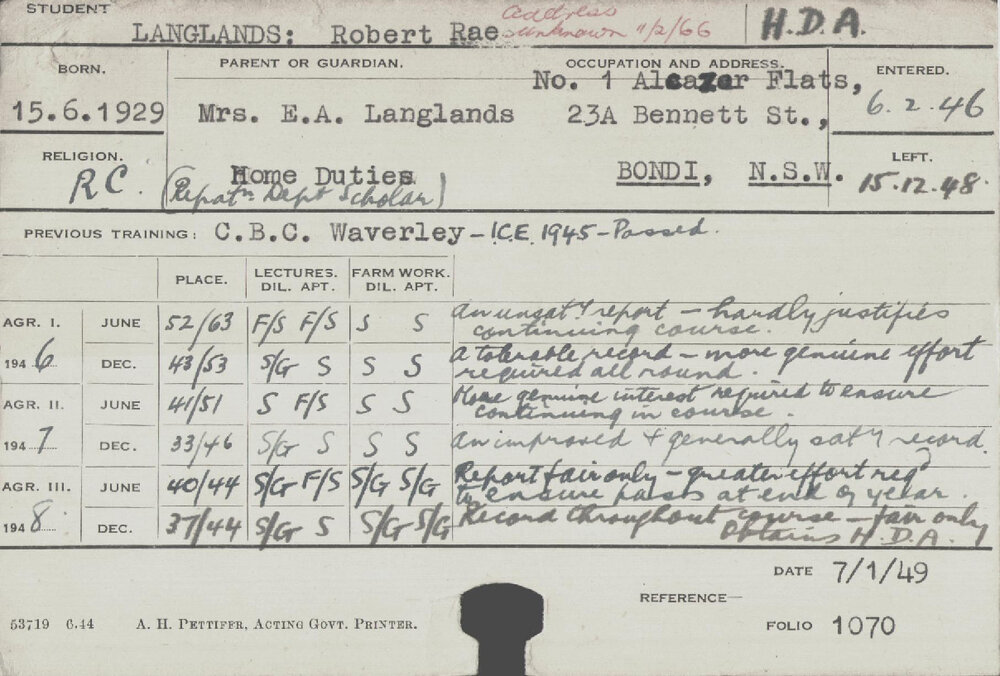 STUDENT
LANGLANDS: Robert Rae
address
unknown 11/2/66
H.D.A.
BORN.
15.6.1929
PARENT OR GUARDIAN.
Mrs. E.A. Langlands
OCCUPATION AND ADDRESS.
No. 1 Alcazar Flats,
23A Bennett St.,
ENTERED.
6.2.46
RELIGION.
RC.
Home Duties
(Repatn Dept Scholar)
BONDI, N.S.W.
LEFT.
15.12.48.
PREVIOUS TRAINING: C.B.C. Waverley - I.C.E. 1945 - Passed.
PLACE. LECTURES. DIL. APT. FARM WORK. DIL. APT.
AGR. I. JUNE 52/63 F/S F/S S S An unsaty report - hardly justifies
continuing course.
1946 DEC. 43/53 S/G S S S A tolerable record - more genuine effort
required all round.
AGR. II. JUNE 41/51 S F/S S S More genuine interest required to ensure
continuing in course.
1947 DEC. 33/46 S/G S S S An improved & generally saty record.
AGR. III. JUNE 40/44 S/G F/S S/G S/G Report fair only - greater effort reqd
to ensure passes at end of year.
1948. DEC. 37/44 S/G S S/G S/G Record throughout course - fair only
Obtains H.D.A.
DATE 7/1/49
REFERENCE—
FOLIO 1070
53719 6.44 A. H. PETTIFER, ACTING GOVT. PRINTER.